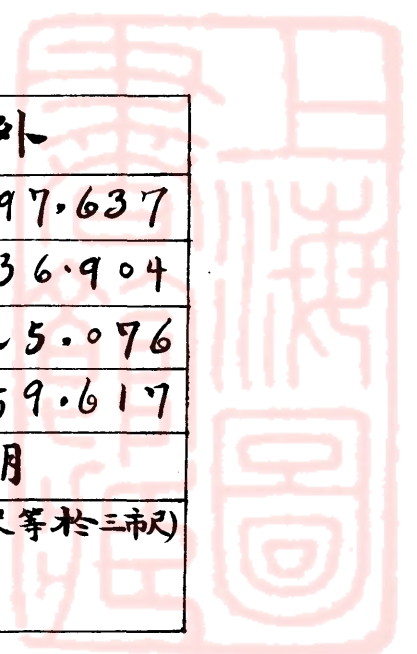 外
97.637
36.904
5.076
59.617
月
尺等於三市尺)
上海圖書館藏